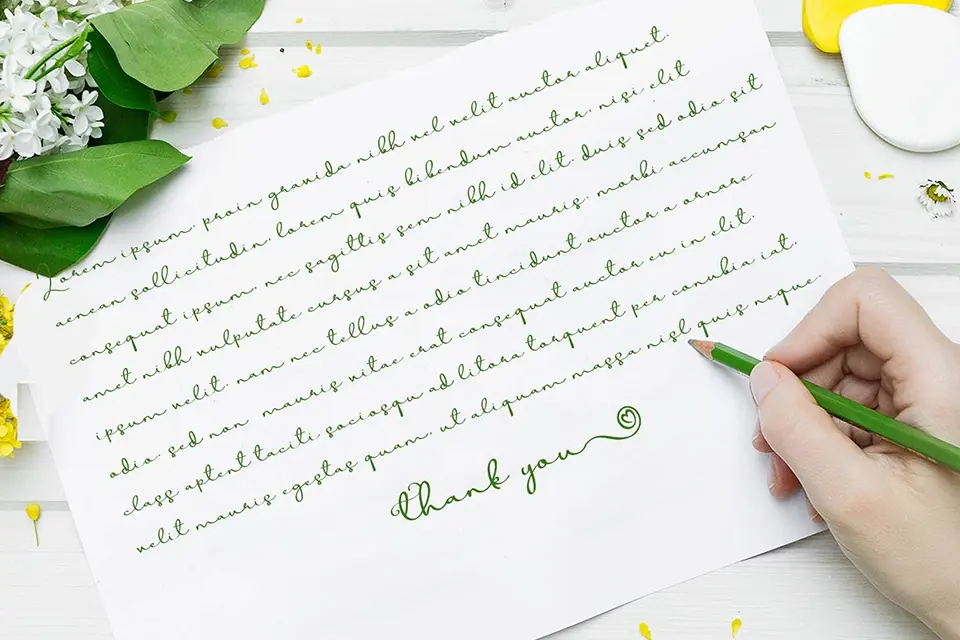 Lorem ipsum. proin gravida nibh vel velit auctor aliquet.
aenean sollicitudin. lorem quis bibendum auctor. nisi elit
consequat ipsum. nec sagittis sem nibh id elit. duis sed odio sit
amet nibh vulputate cursus a sit amet mauris. morbi accumsan
ipsum velit. nam nec tellus a odio tincidunt auctor a ornare
odio. sed non mauris vitae erat consequat auctor eu in elit.
class aptent taciti sociosqu ad litora torquent per conubia iat.
velit mauris egestas quam. ut aliquam massa nisl quis neque.
thank you